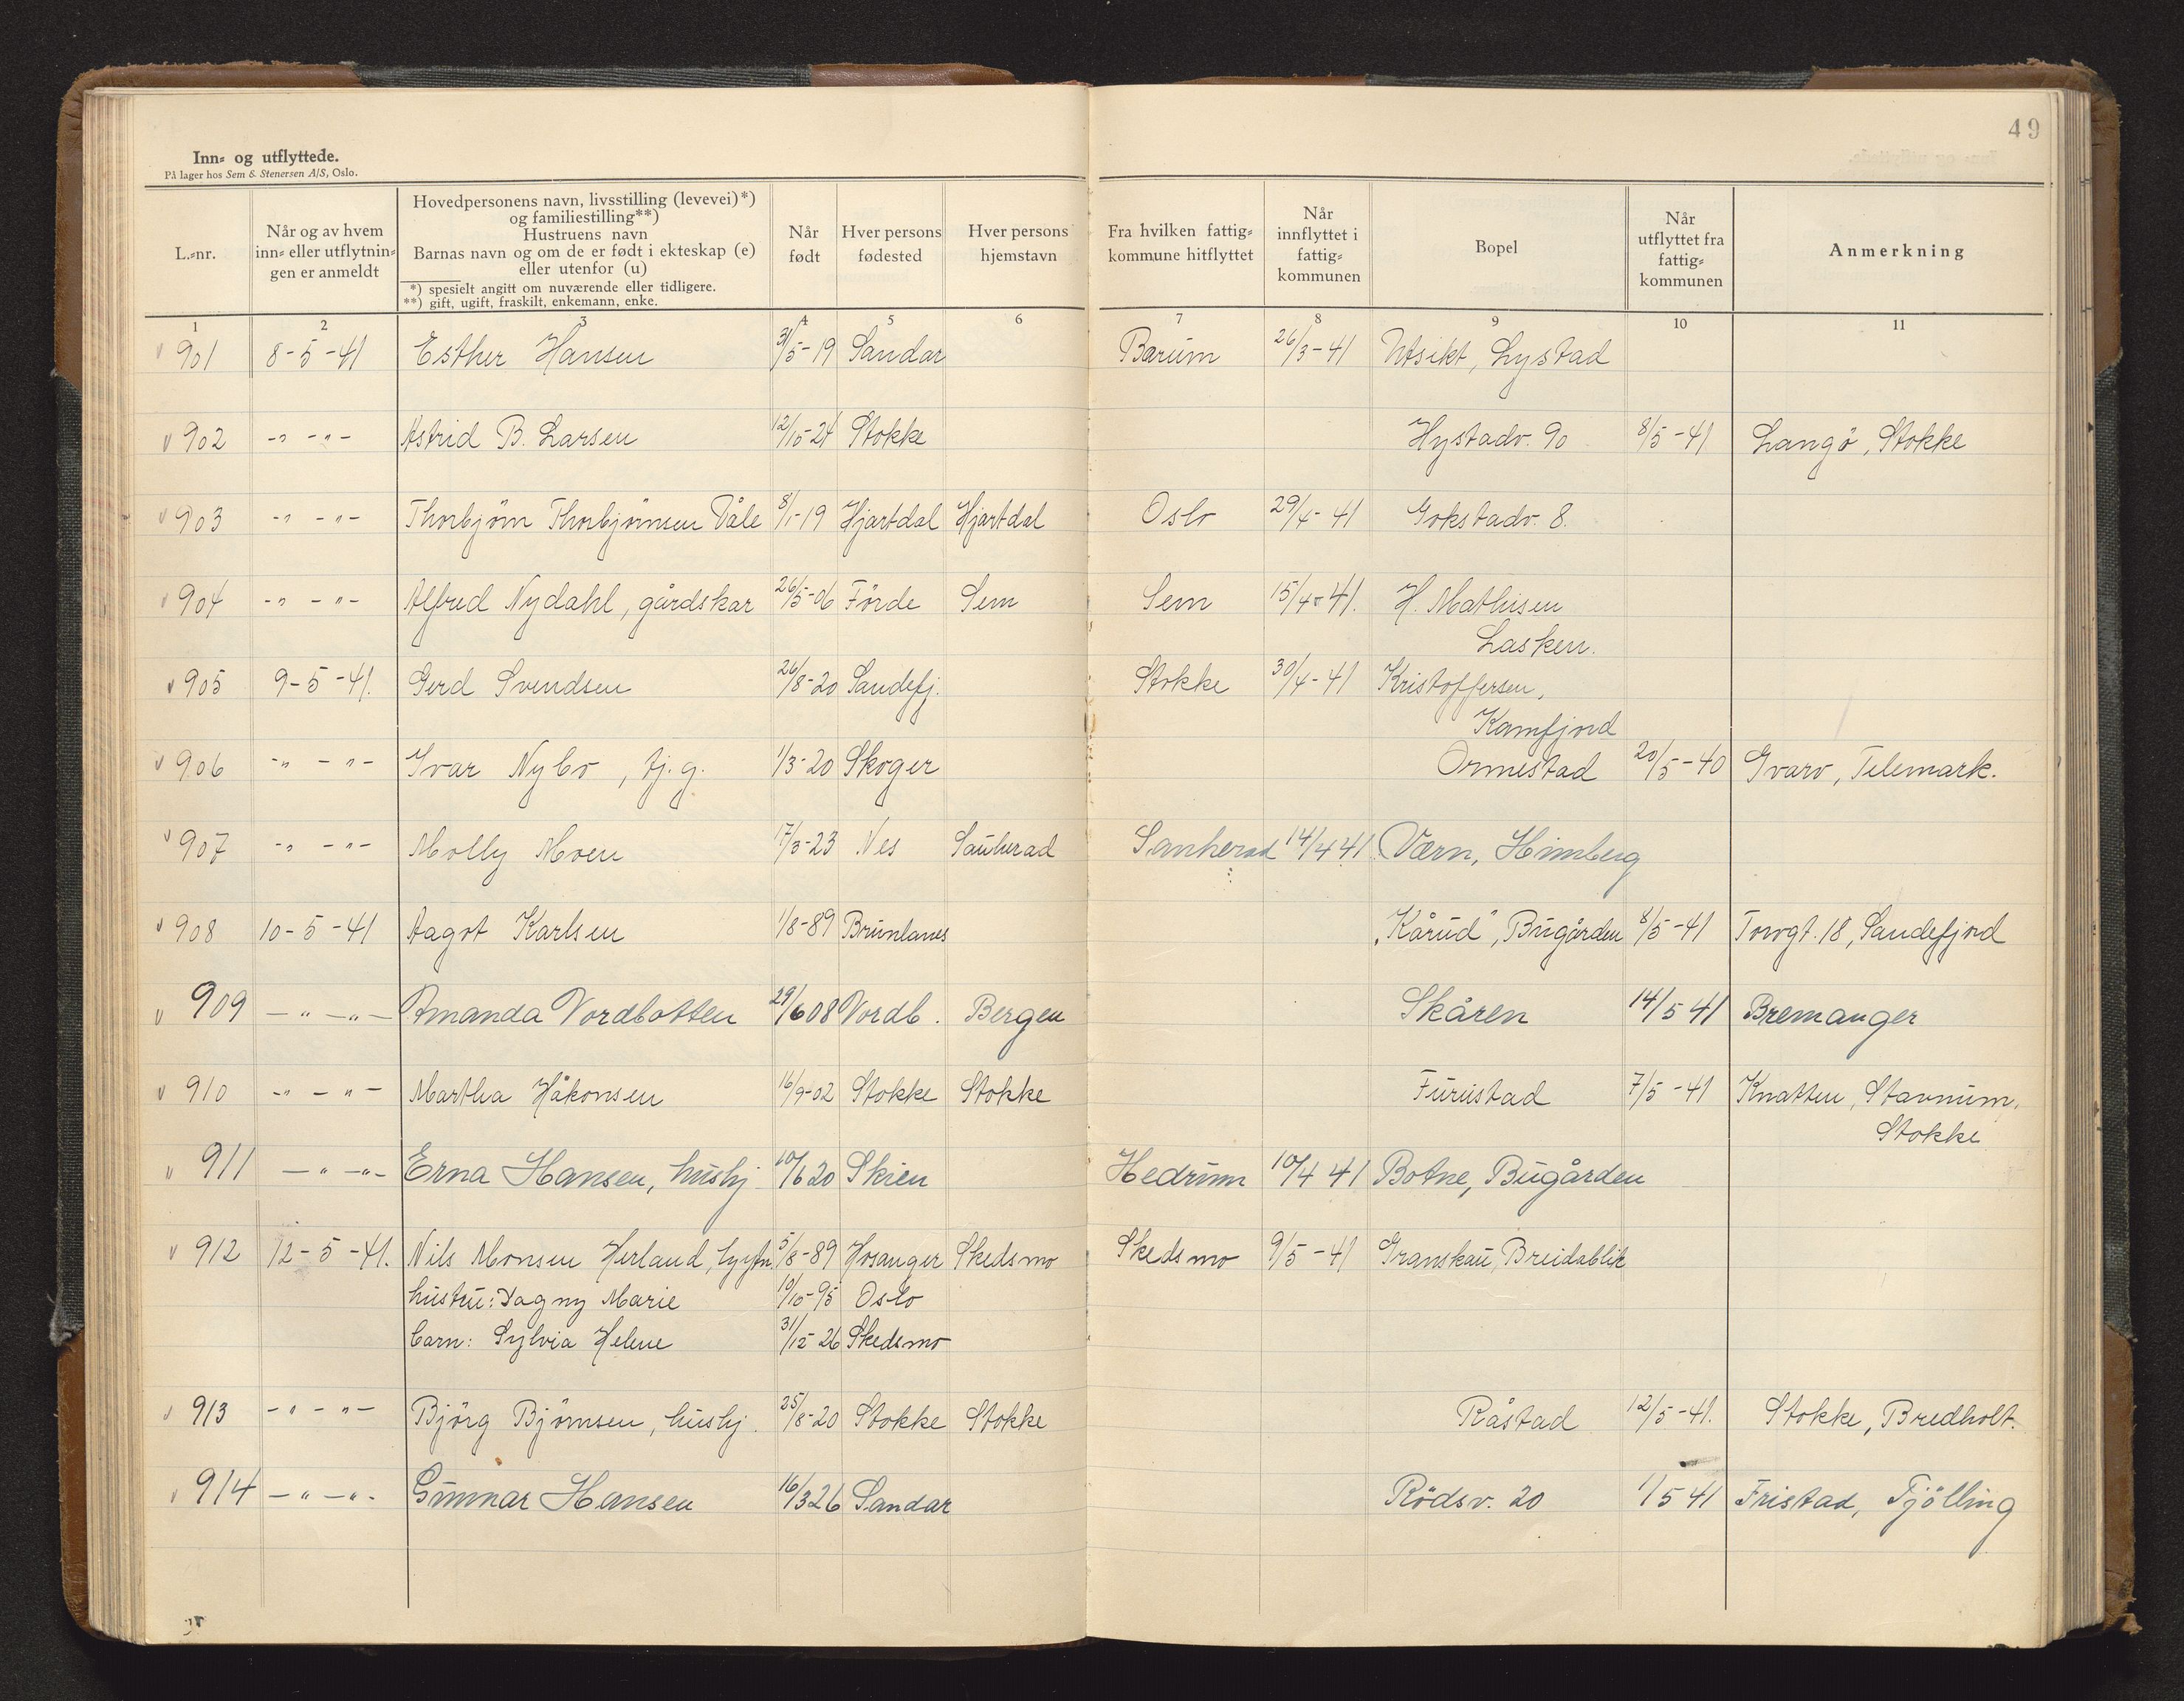 49
Inn- og utflyttede.
På lager hos Sem & Stenersen A/S, Oslo.
L.-nr.
Når og av hvem
inn- eller utflytnin-
gen er anmeldt
Hovedpersonens navn, livsstilling (levevei)*)
og familiestilling**)
Hustruens navn
Barnas navn og om de er født i ekteskap (e)
eller utenfor (u)
*) spesielt angitt om nuværende eller tidligere.
**) gift, ugift, fraskilt, enkemann, enke.
Når
født
Hver persons
fødested
Hver persons
hjemstavn
Fra hvilken fattig-
kommune hitflyttet
Når
innflyttet i
fattig-
kommunen
Bopel
Når
utflyttet fra
fattig-
kommunen
Anmerkning
1 2 3 4 5 6 7 8 9 10 11
901 8-5-41 Esther Hansen 31/5-19 Sandar Bærum 26/3-41 Utsikt, Lystad
902 -"- -"- Astrid B. Larsen 12/10-24 Stokke Hystadv. 90 8/5-41 Langö, Stokke
903 -"- -"- Thorbjörn Thorbjörnsen Våle 8/1-19 Hjartdal Hjartdal Oslo 29/4-41 Gokstadv. 8.
904 -"- -"- Alfred Nydahl, gårdskar 26/5-06 Förde Sem Sem 15/4-41. H. Mathisen
Lasken.
905 9-5-41. Gerd Svendsen 26/8-20 Sandefj. Stokke 30/4-41 Kristoffersen,
Kamfjord
906 -"- -"- Ivar Nybo, tj.g. 1/3-20 Skoger Ormestad 20/5-40 Gvarv, Telemark.
907 -"- -"- Molly Moen 17/3-23 Nes Sauherad Sauherad 14/4 41 Værn, Himberg
908 10-5-41 Aagot Karlsen 1/8-89 Brunlanes „Kårud", Bugården 8/5-41 Torvgt. 18, Sandefjord
909 -"- -"- Amanda Nordbotten 29/6 08 Nordb. Bergen Skåren 14/5 41 Bremanger
910 -"- -"- Martha Håkonsen 16/9-02 Stokke Stokke Furustad 7/5-41 Knatten, Stavnum,
Stokke
911 -"- -"- Erna Hansen, hushj. 10/6 20 Skien Hedrum 10/4 41 Botne, Bugården
912 12-5-41. Nils Monsen Herland, 5/8-89 Hosanger Skedsmo Skedsmo 9/5-41 Granskau, Breidablik
hustru: Dagny Marie 10/10-95 Oslo
barn: Sylvia Helene 31/12-26 Skedsmo
913 -"- -"- Björg Björnsen, hushj. 25/8-20 Stokke Stokke Råstad 12/5-41. Stokke, Bredholt.
914 -"- -"- Gunnar Hansen 16/3 26 Sandar Rödsv. 20 1/5 41 Fristad, Tjölling